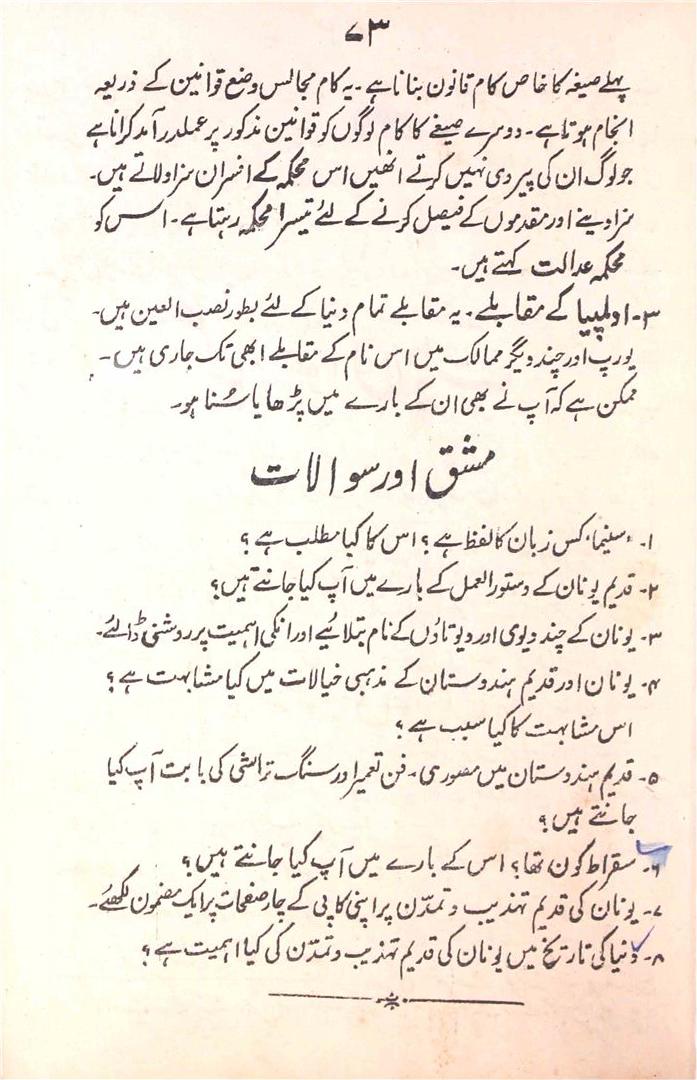 ۷۳
پہلے صیغہ کا خاص کام قانون بنانا ہے۔ یہ کام مجالس وضع قوانین کے ذریعہ
انجام ہوتا ہے۔ دوسرے صیغے کا کام لوگوں کو قوانین مذکور پر عملدرآمد کرانا ہے
جو لوگ ان کی پیروی نہیں کرتے انھیں اس محکمہ کے افسران سزا دلاتے ہیں۔
سزا دینے اور مقدموں کے فیصل کرنے کے لئے تیسرا محکمہ رہتا ہے۔ اس کو
محکمہ عدالت کہتے ہیں۔
۳۔ اولمپیا کے مقابلے۔ یہ مقابلے تمام دنیا کے لئے بطور نصب العین ہیں۔
یورپ اور چند دیگر ممالک میں اس نام کے مقابلے ابھی تک جاری ہیں۔
ممکن ہے کہ آپ نے بھی ان کے بارے میں پڑھا یا سُنا ہو۔
مشق اور سوالات
۱۔ ’سنیما‘ کس زبان کا لفظ ہے؟ اس کا کیا مطلب ہے؟
۲۔ قدیم یونان کے دستور العمل کے بارے میں آپ کیا جانتے ہیں؟
۳۔ یونان کے چند دیوی اور دیوتاؤں کے نام بتلائیے اور انکی اہمیت پر روشنی ڈالئے۔
۴۔ یونان اور قدیم ہندوستان کے مذہبی خیالات میں کیا مشابہت ہے؟
اس مشابہت کا کیا سبب ہے؟
۵۔ قدیم ہندوستان میں مصوری۔ فن تعمیر اور سنگ تراشی کی بابت آپ کیا
جانتے ہیں؟
۶۔ سقراط کون تھا؟ اس کے بارے میں آپ کیا جانتے ہیں؟
۷۔ یونان کی قدیم تہذیب و تمدّن پر اپنی کاپی کے چار صفحات پر ایک مضمون لکھئے۔
۸۔ دنیا کی تاریخ میں یونان کی قدیم تہذیب و تمدّن کی کیا اہمیت ہے؟